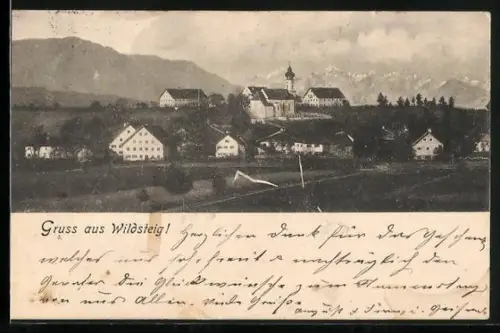 Gruss aus Wildsteig!
Herzlichen Dank für das Geschenk
welches uns sehr freut u nachträglich den
die Glückwünsche zum Namenstag
von uns Allen. viele Grüsse